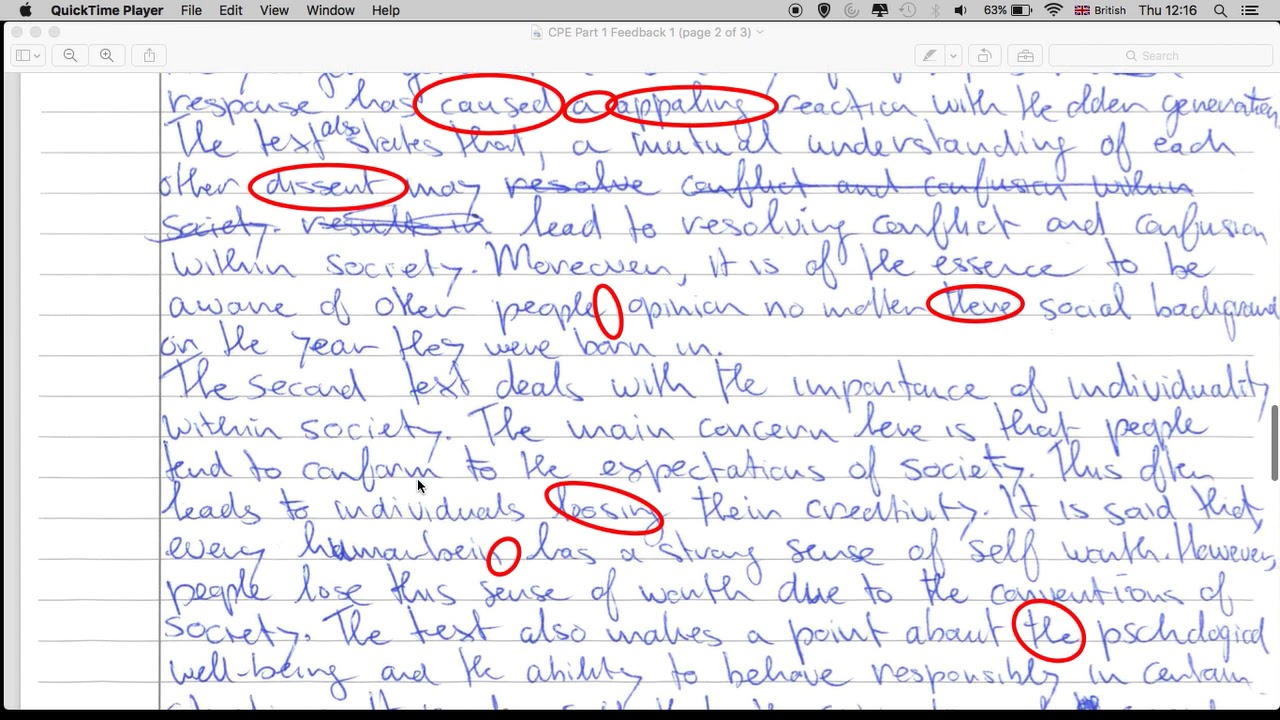 QuickTime Player File Edit View Window Help 63% British Thu 12:16
CPE Part 1 Feedback 1 (page 2 of 3)
Search
response has caused a appaling reaction with the older generation
The text also states that, a mutual understanding of each
other dissent may resolve conflict and confusion within
society. results in lead to resolving conflict and confusion
within society. Moreover, it is of the essence to be
aware of other people opinion no matter there social background
or the year they were born in.
The second text deals with the importance of individuality
within society. The main concern here is that people
tend to conform to the expectations of society. This often
leads to individuals loosing their creativity. It is said that,
every human bein has a strong sense of self worth. However,
people lose this sense of worth due to the conventions of
society. The text also makes a point about the pschological
well-being and the ability to behave responsibly in certain